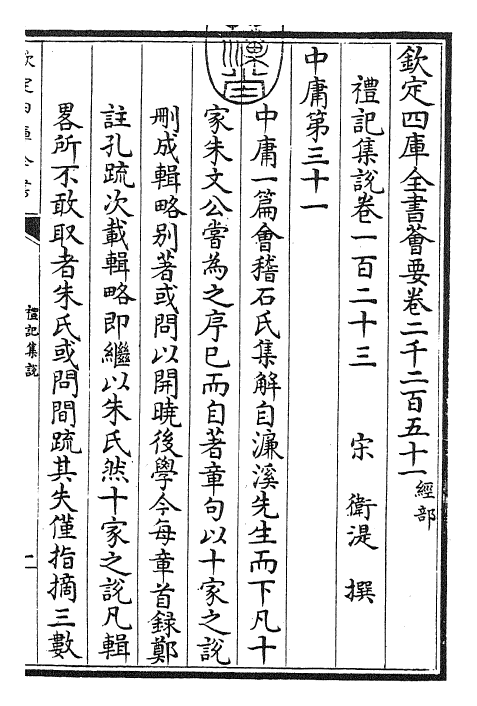 欽定四庫全書薈要卷二千二百五十一經部
禮記集說卷一百二十三　宋　衛湜　撰
中庸第三十一
中庸一篇會稽石氏集解自濂溪先生而下凡十
家朱文公嘗為之序已而自著章句以十家之說
刪成輯略别著或問以開曉後學今每章首録鄭
註孔疏次載輯略即繼以朱氏然十家之說凡輯
畧所不敢取者朱氏或問間疏其失僅指摘三數
欽定四庫全書
禮記集說